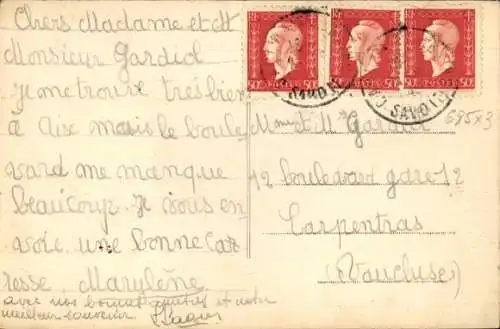 Chers Madame et M
Monsieur Gardiol
je me trouve tres bien
à Aix mais le boule
vard me manque
beaucoup. Je vous en
voie une bonne Car
resse Marylène
avec nos bonnes amitiés et notre
meilleur souvenir.
RF
50c
RF
50c
RF
50c
POSTES
SAVOIE
Mme et Mr Gardiol
12 boulevard gare 12
Carpentras
(Vaucluse)
685x3